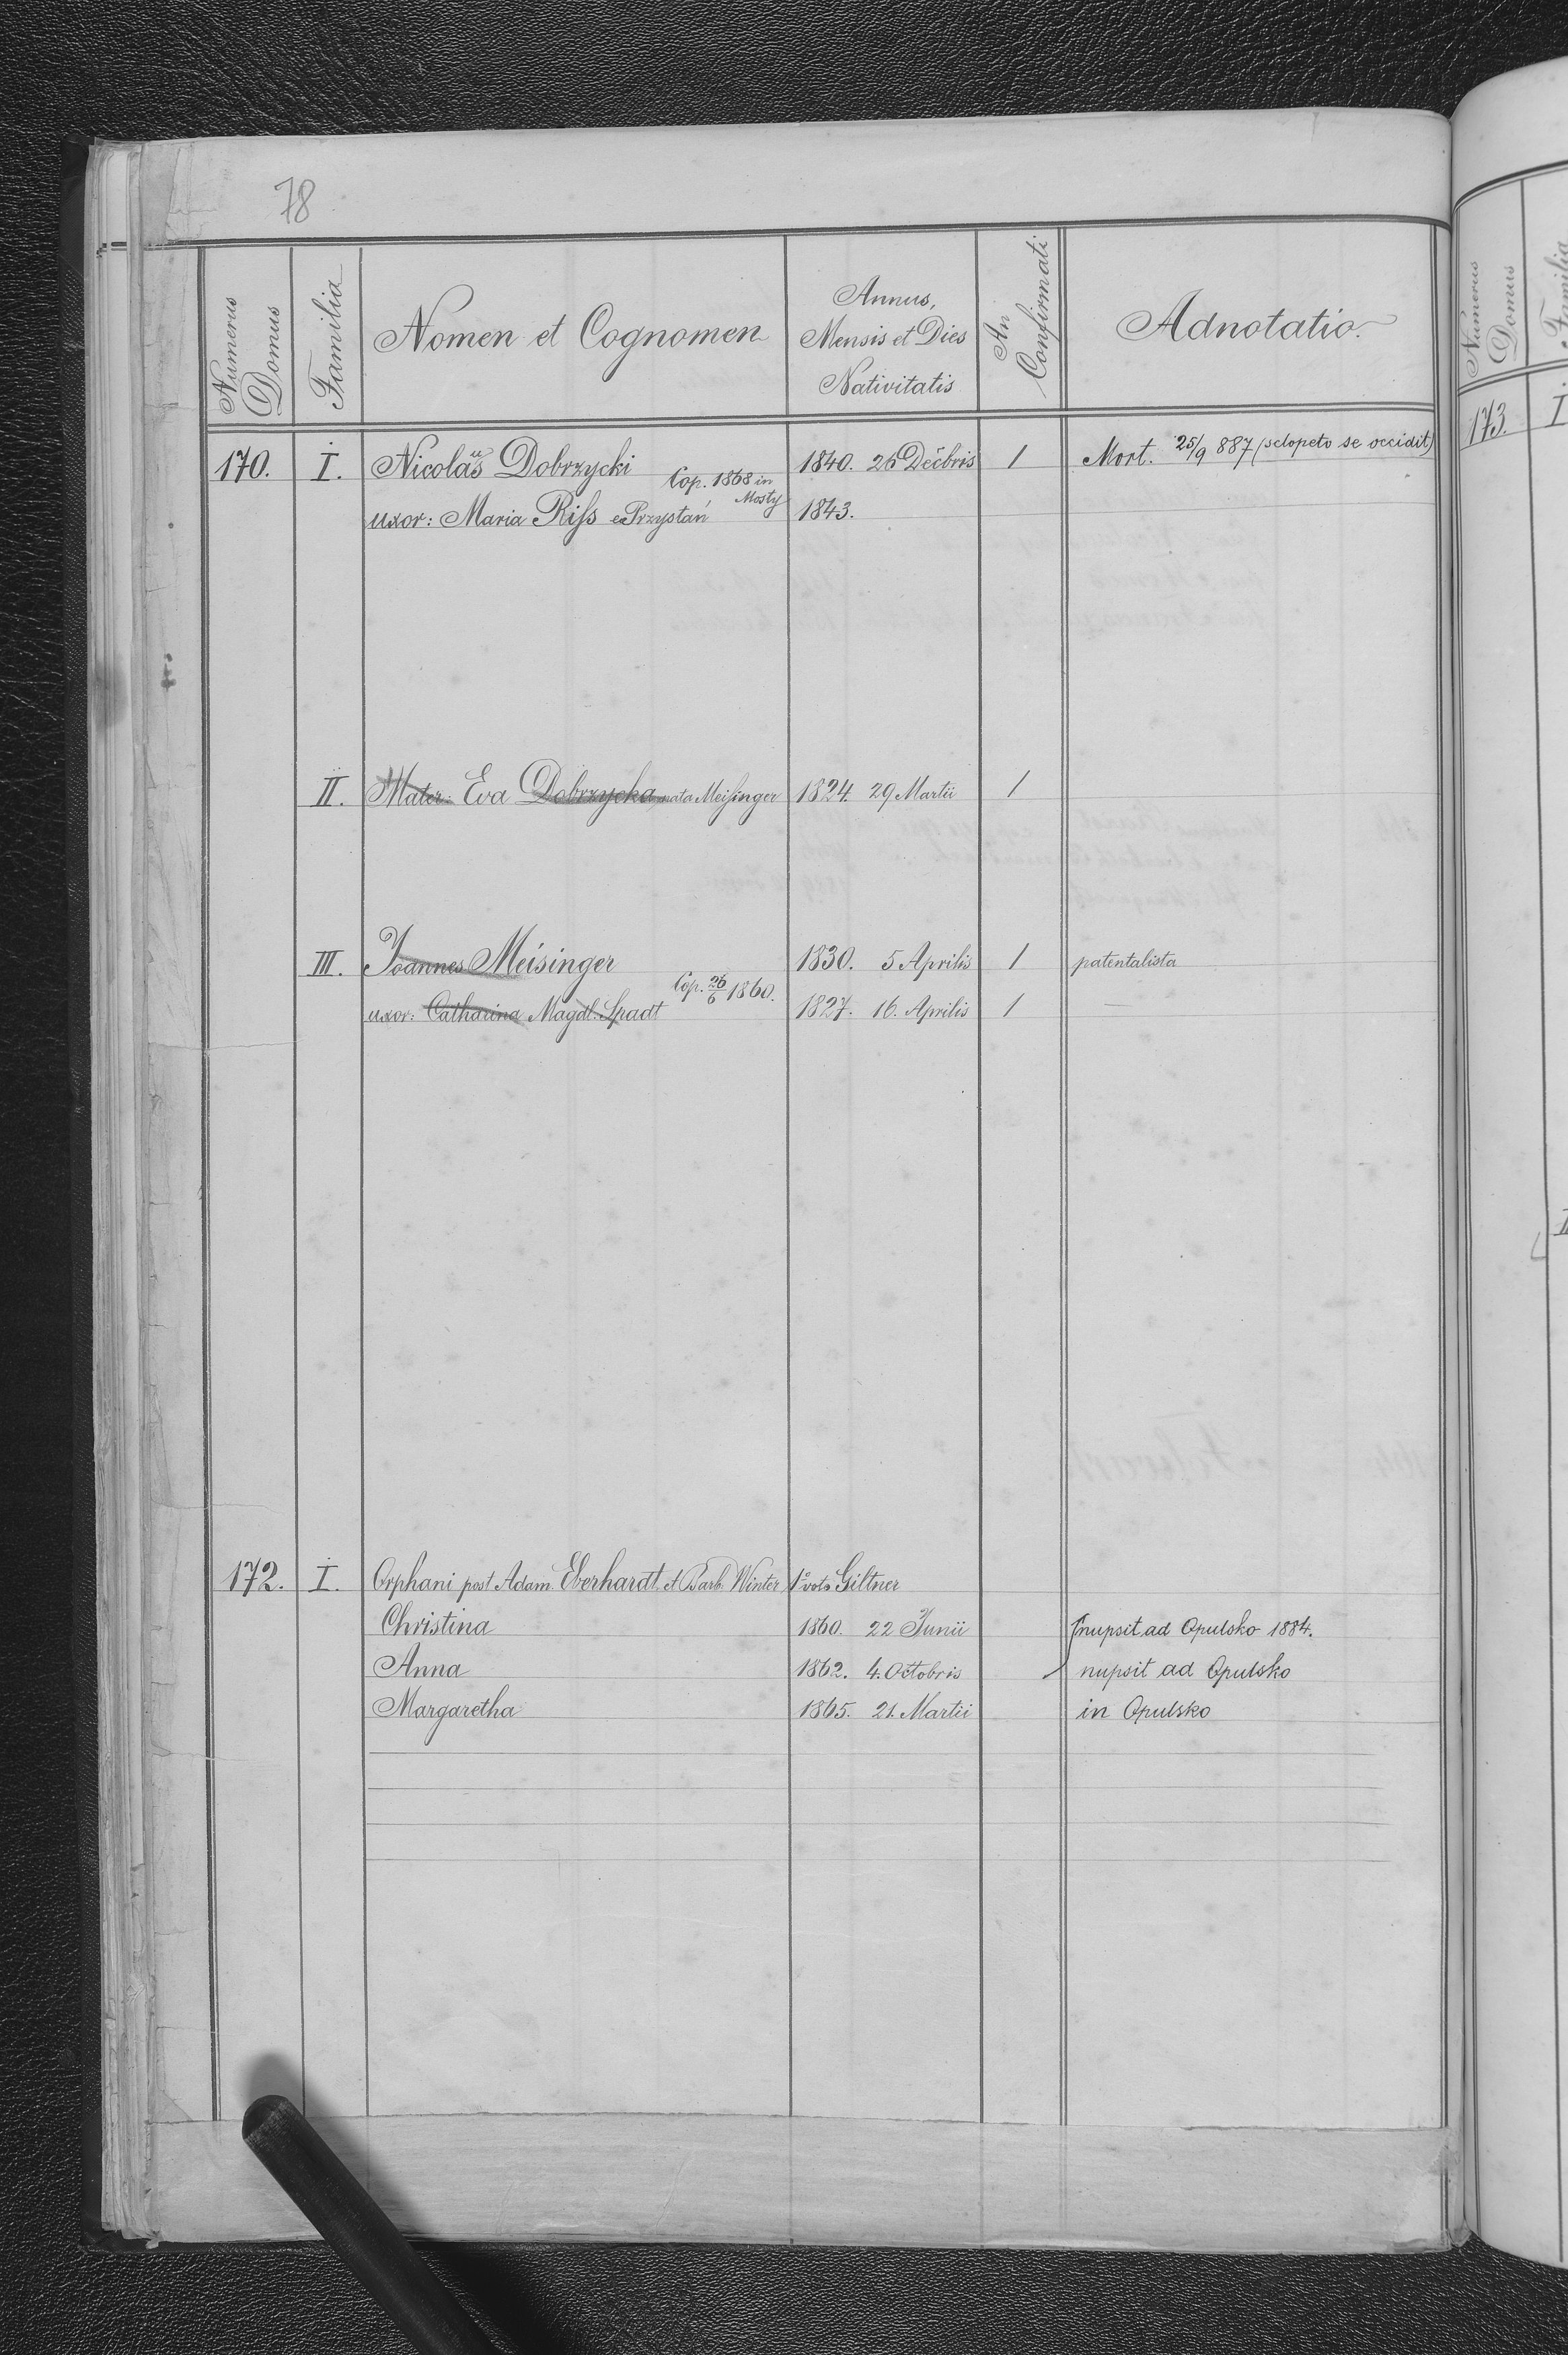 78
Numerus Domus Familia Nomen et Cognomen Annus, Mensis et Dies Nativitatis An Confirmati Adnotatio.
170. I. Nicolaus Dobrzycki Cop. 1868 in Mosty 1840. 26 Decbris 1 Mort. 25/9 887 (sclopeto se occidit)
uxor: Maria Riſs e Przystań 1843.
II. Mater: Eva Dobrzycka, nata Meiſinger 1824. 29 Martii 1
III. Joannes Meisinger 1830. 5 Aprilis 1 patentalista
Cop. 26/6 1860.
uxor: Catharina Magdl. Spadt 1827. 16. Aprilis 1 —
172. I. Orphani post Adam. Eberhardt et Barb. Winter, 1º voto Giltner
Christina 1860. 22 Junii nupsit ad Opulsko 1884.
Anna 1862. 4. Octobris nupsit ad Opulsko
Margaretha 1865. 21. Martii in Opulsko
Numerus Domus Familia
173. I.